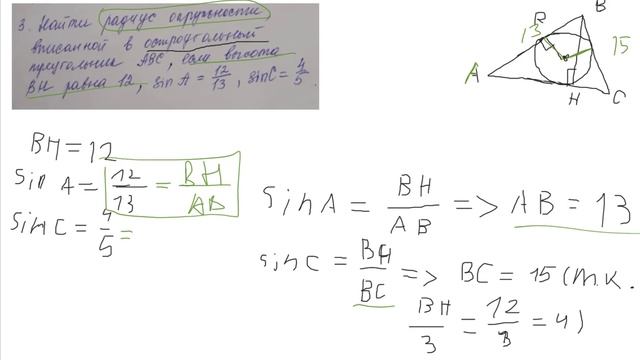 3. Найти радиус окружности
вписанной в остроугольный
треугольник ABC, если высота
BH равна 12, sin A = 12/13, sin C = 4/5.
B
P
13
15
A
H
C
BH = 12
sin A = 12/13 = BH/AB
sin C = 4/5 =
sin A = BH/AB => AB = 13
sin C = BH/BC => BC = 15 (т.к.
BH/3 = 12/3 = 4)